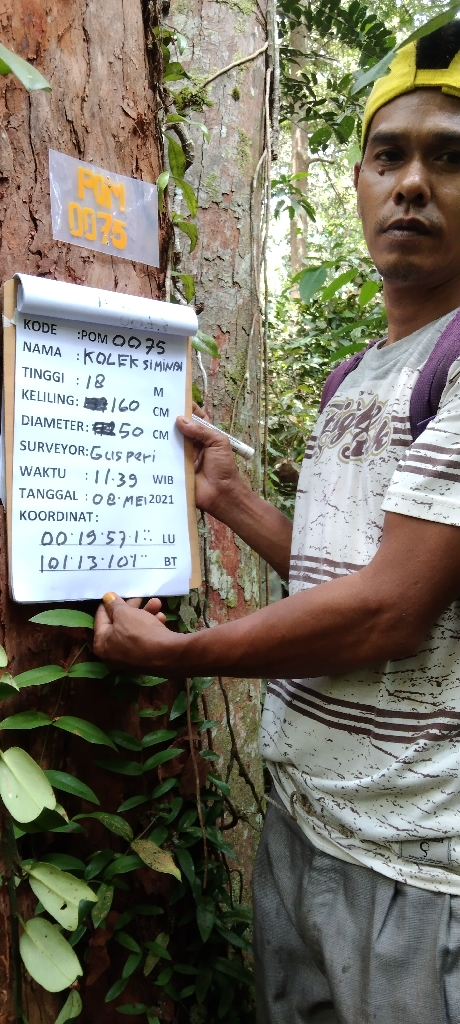 POM
0075
KODE :POM 0075
NAMA : KOLEK SIMINAI
TINGGI : 18 M
KELILING: 160 CM
DIAMETER: 50 CM
SURVEYOR: Gusperi
WAKTU : 11.39 WIB
TANGGAL : 08 MEI 2021
KOORDINAT :
00.19.571.. LU
101.13.101.. BT